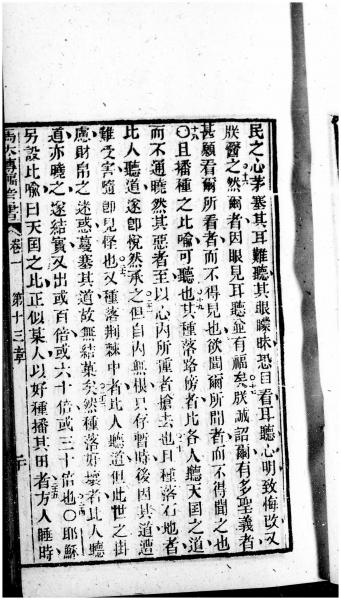 民之心茅塞其耳難聽其眼矇眛恐目看耳聽心明致悔改又
朕醫之然爾者因眼見耳聽並有福矣朕誠詔爾有多聖義者
甚願看爾所看者而不得見也欲聞爾所聞者而不得聞之也
〇且播種之比喻可聽也其種落路傍者比各人聽天国之道
而不通曉然其惡者至以心內所種者搶去也且種落石地者
比人聽道遂卽悅然承之但自內無根只存暫時後因其道遭
難受害隨卽見怪也又種落荆棘中者比人聽道但此世之掛
慮財帛之迷惑蔓塞其道故無結菓矣然種落好壤者比人聽
道亦曉之遂結實又出或百倍或六十倍或三十倍也〇耶穌
另設比喻曰天国之比正似某人以好種播其田者方人睡時
卷一
第十三章